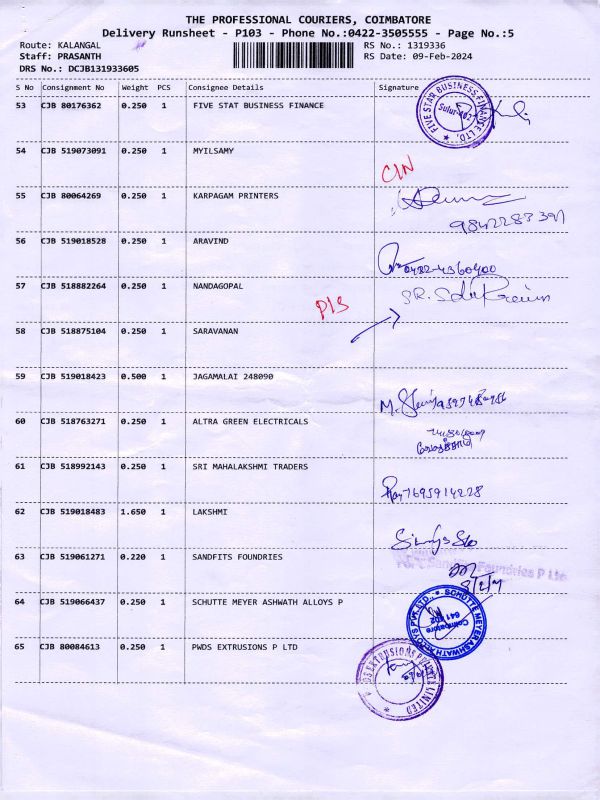 THE PROFESSIONAL COURIERS, COIMBATORE
Delivery Runsheet - P103 - Phone No.:0422-3505555 - Page No.:5
Route: KALANGAL RS No.: 1319336
Staff: PRASANTH RS Date: 09-Feb-2024
DRS No.: DCJB131933605
S No Consignment No Weight PCS Consignee Details Signature
53 CJB 80176362 0.250 1 FIVE STAT BUSINESS FINANCE
FIVE STAR BUSINESS FINANCE LTD.
Sulur-402
54 CJB 519073091 0.250 1 MYILSAMY
CIN
55 CJB 80064269 0.250 1 KARPAGAM PRINTERS
56 CJB 519018528 0.250 1 ARAVIND
0422-4360400
57 CJB 518882264 0.250 1 NANDAGOPAL
P13
58 CJB 518875104 0.250 1 SARAVANAN
59 CJB 519018423 0.500 1 JAGAMALAI 248090
60 CJB 518763271 0.250 1 ALTRA GREEN ELECTRICALS
61 CJB 518992143 0.250 1 SRI MAHALAKSHMI TRADERS
7695914228
62 CJB 519018483 1.650 1 LAKSHMI
63 CJB 519061271 0.220 1 SANDFITS FOUNDRIES
Foundries P Ltd
64 CJB 519066437 0.250 1 SCHUTTE MEYER ASHWATH ALLOYS P
SCHUTTE MEYER ASHWATH ALLOYS PVT. LTD.,
Coimbatore
641 402
65 CJB 80084613 0.250 1 PWDS EXTRUSIONS P LTD
EXTRUSIONS PRIVATE LIMITED